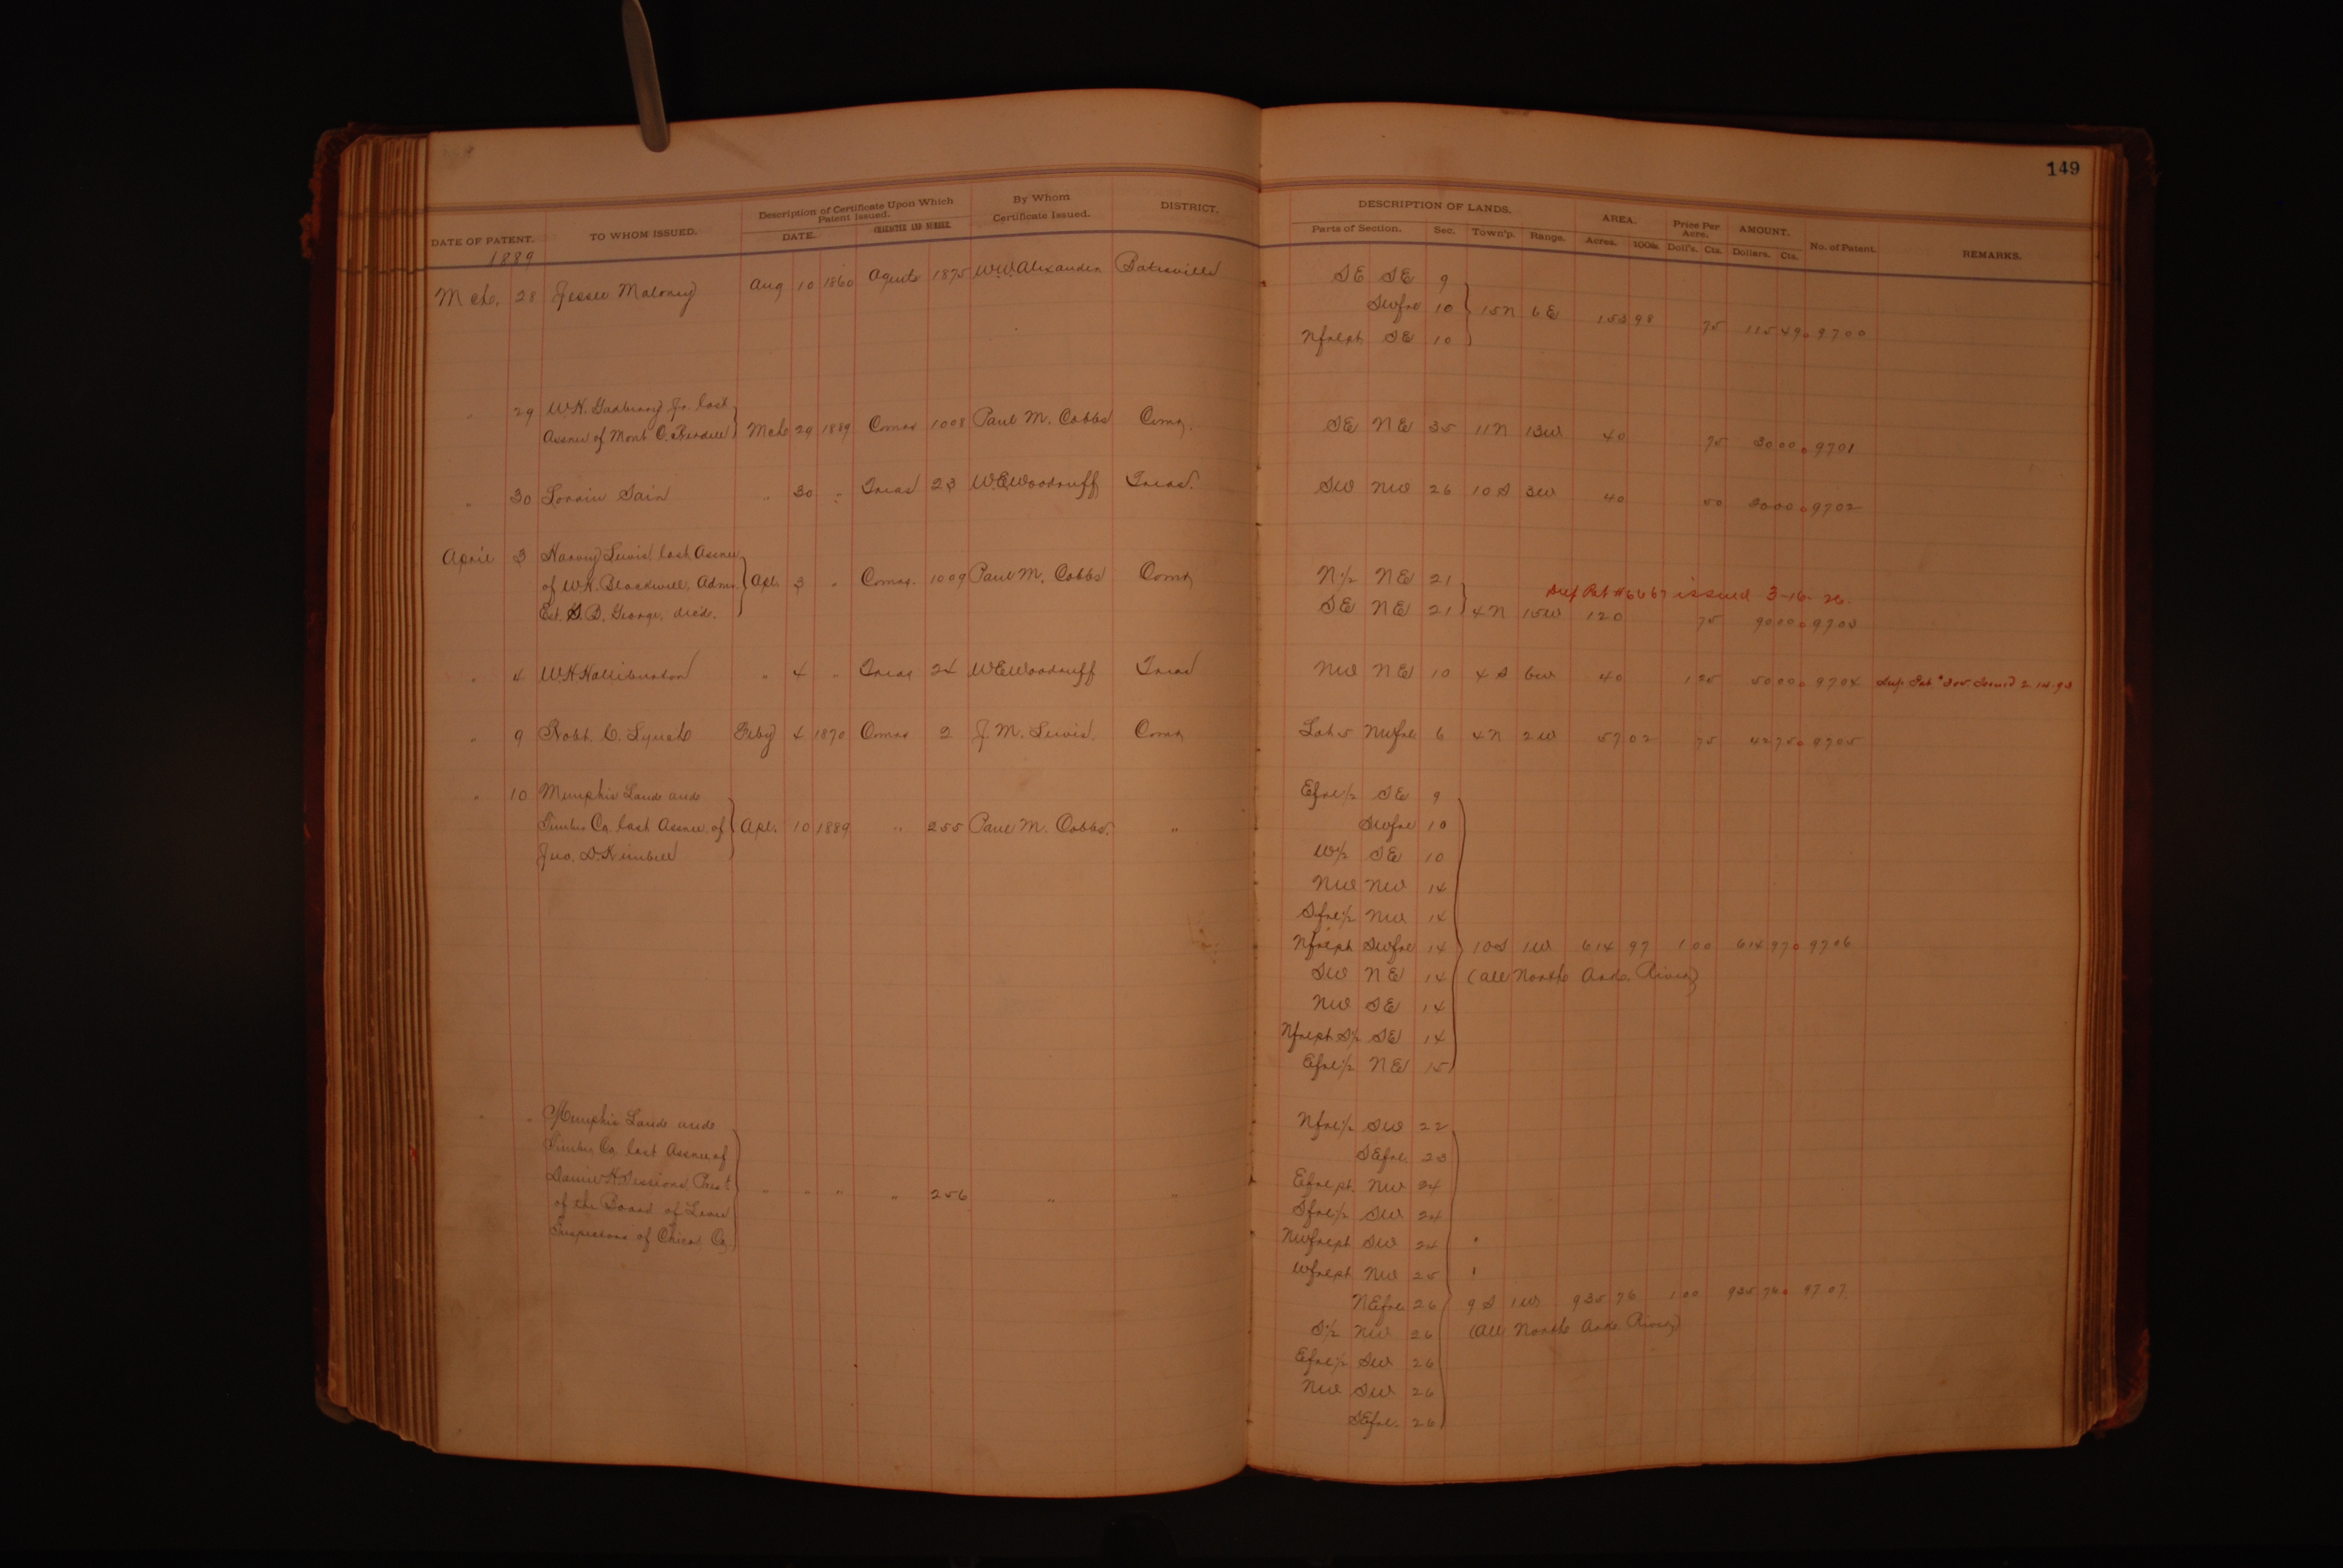 149
DATE OF PATENT. TO WHOM ISSUED. Description of Certificate Upon Which Patent Issued. DATE. CHARACTER AND NUMBER. By Whom Certificate Issued. DISTRICT. DESCRIPTION OF LANDS. Parts of Section. Sec. Town'p. Range. AREA. Acres. 100ths. Price Per Acre. Doll's. Cts. AMOUNT. Dollars. Cts. No. of Patent. REMARKS.
1889
Mch. 28 Jesse Maloney Aug 10 1860 Agents 1875 W.W. Alexander Batesville SE SE 9
SWfrl 10 } 15N 6E 153 98 75 115 49 9700
Nfrlpt SE 10
" 29 W.H. Gadberry Jr. last
Assnee of Mont C. } Mch 29 1889 Comrs 1008 Paul M. Cobbs Comr. SE NE 35 11N 13W 40 75 30 00 9701
" 30 Sain " 30 " Treas 23 W.E. Woodruff Treas. SW NW 26 10S 3W 40 50 20 00 9702
April 3 Harvey Lewis last Assnee
of W.H. Blackwell, Admr. } Apl. 3 " Comrs. 1009 Paul M. Cobbs Comr N½ NE 21
Dup Pat #6667 issued 3-16-26.
Est. S.B. George, decd. SE NE 21 } 4N 15W 120 75 90 00 9703
" 4 W.H. Halliburton " 4 " Treas 24 W.E. Woodruff Treas NW NE 10 4S 6W 40 1 25 50 00 9704 Dup. Pat # 305 Issued 2.14.93
" 9 Robt. C. Lynch Feby 4 1870 Comrs 2 J.M. Lewis. Comr Lot 5 NWfrl 6 4N 2W 57 02 75 42 75 9705
" 10 Memphis Land and
Timber Co. last Assnee of } Apl. 10 1889 " 255 Paul M. Cobbs. "
Jno. D. Kimbell
Efrl½ SE 9
SWfrl 10
W½ SE 10
NW NW 14
Sfrl½ NW 14
Nfrlpt SWfrl 14 } 10S 1W 614 97 1 00 614 97 9706
SW NE 14 (All North Ark. River)
NW SE 14
Nfrlpt S½ SE 14
Efrl½ NE 15
" " Memphis Land and
Timber Co. last Assnee of
Daniel H. Sessions, Prest
of the Board of Levee } " " " " 256 " "
Inspectors of Chicot Co.
Nfrl½ SW 22
SEfrl 23
Efrlpt. NW 24
Sfrl½ SW 24
NWfrlpt SW 24 "
Wfrlpt NW 25 "
NEfrl 26 } 9S 1W 935 76 1 00 935 76 9707
S½ NW 26 (All North Ark River)
Efrl½ SW 26
NW SW 26
SEfrl. 26